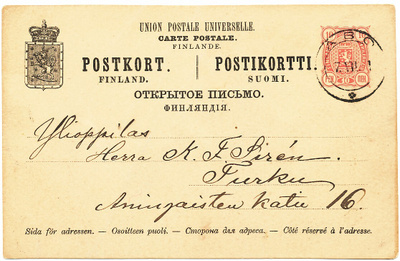 UNION POSTALE UNIVERSELLE.
CARTE POSTALE.
FINLANDE.
POSTKORT. POSTIKORTTI.
FINLAND. SUOMI.
ОТКРЫТОЕ ПИСЬМО.
ФИНЛЯНДІЯ.
ABO
Ylioppilas
Herra K. F. Sirén.
Turku
Aningaisten katu 16.
Sida för adressen. — Osoitteen puoli. — Сторона для адреса. — Côté réservé à l'adresse.